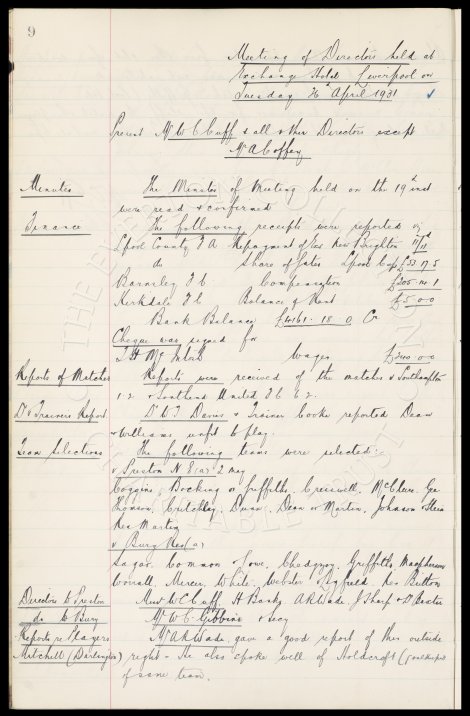 9
Meeting of Directors held at
Exchange Hotel Liverpool on
Tuesday April 1931
Present Mr W C Cuff & all other Directors except
Mr A Coffey
Minutes The Minutes of Meeting held on the 19th inst
were read & confirmed
Finance The following receipts were reported
Lpool County F A Repayment of New Brighton
do Share of Gates Lpool Cup £33 17 5
Barnsley F C Compensation
Kirkdale F C Balance of Rent £5 0 0
Bank Balance £4161 - 18 0 Cr
Cheque was signed for
T H McIntosh Wages £340 0 0
Reports of Matches Reports were received of the matches v Southampton
1-2 & Southend United F C
Dr & Trainers Report Dr W T Davis & Trainer Cooke reported Dean
& Williams unfit to play
Team Selections The following teams were selected
v Preston N E (a) 2 May
Coggins, Bocking or Griffiths, Cresswell, McClure, Gee
Thomson, Critchley, Dunn, Dean or Martin, Johnson & Stein
Res Martin
v Bury Res (a)
Sagar, Common & Lowe, Chedgzoy, Griffiths, Macpherson
Worrall, Mercer, White, Webster & Res Button
Directors to Preston Messrs W C Cuff, H Banks, A R Wade, J Sharp & Dr Baxter
do to Bury Mr W C Gibbins & secy
Reports re Players Mr A R Wade gave a good report of this outside
Mitchell (Darlington) right - He also spoke well of Holdcroft (goalkeeper
of same team.